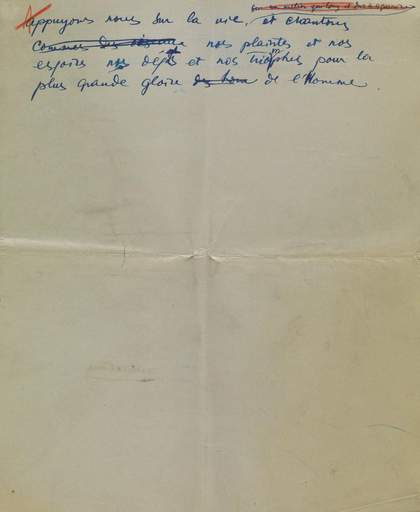 appuyons nous sur la vie, et chantons
nos plaintes et nos
espoirs nos défis et nos triomphes pour la
plus grande gloire de l'Homme.